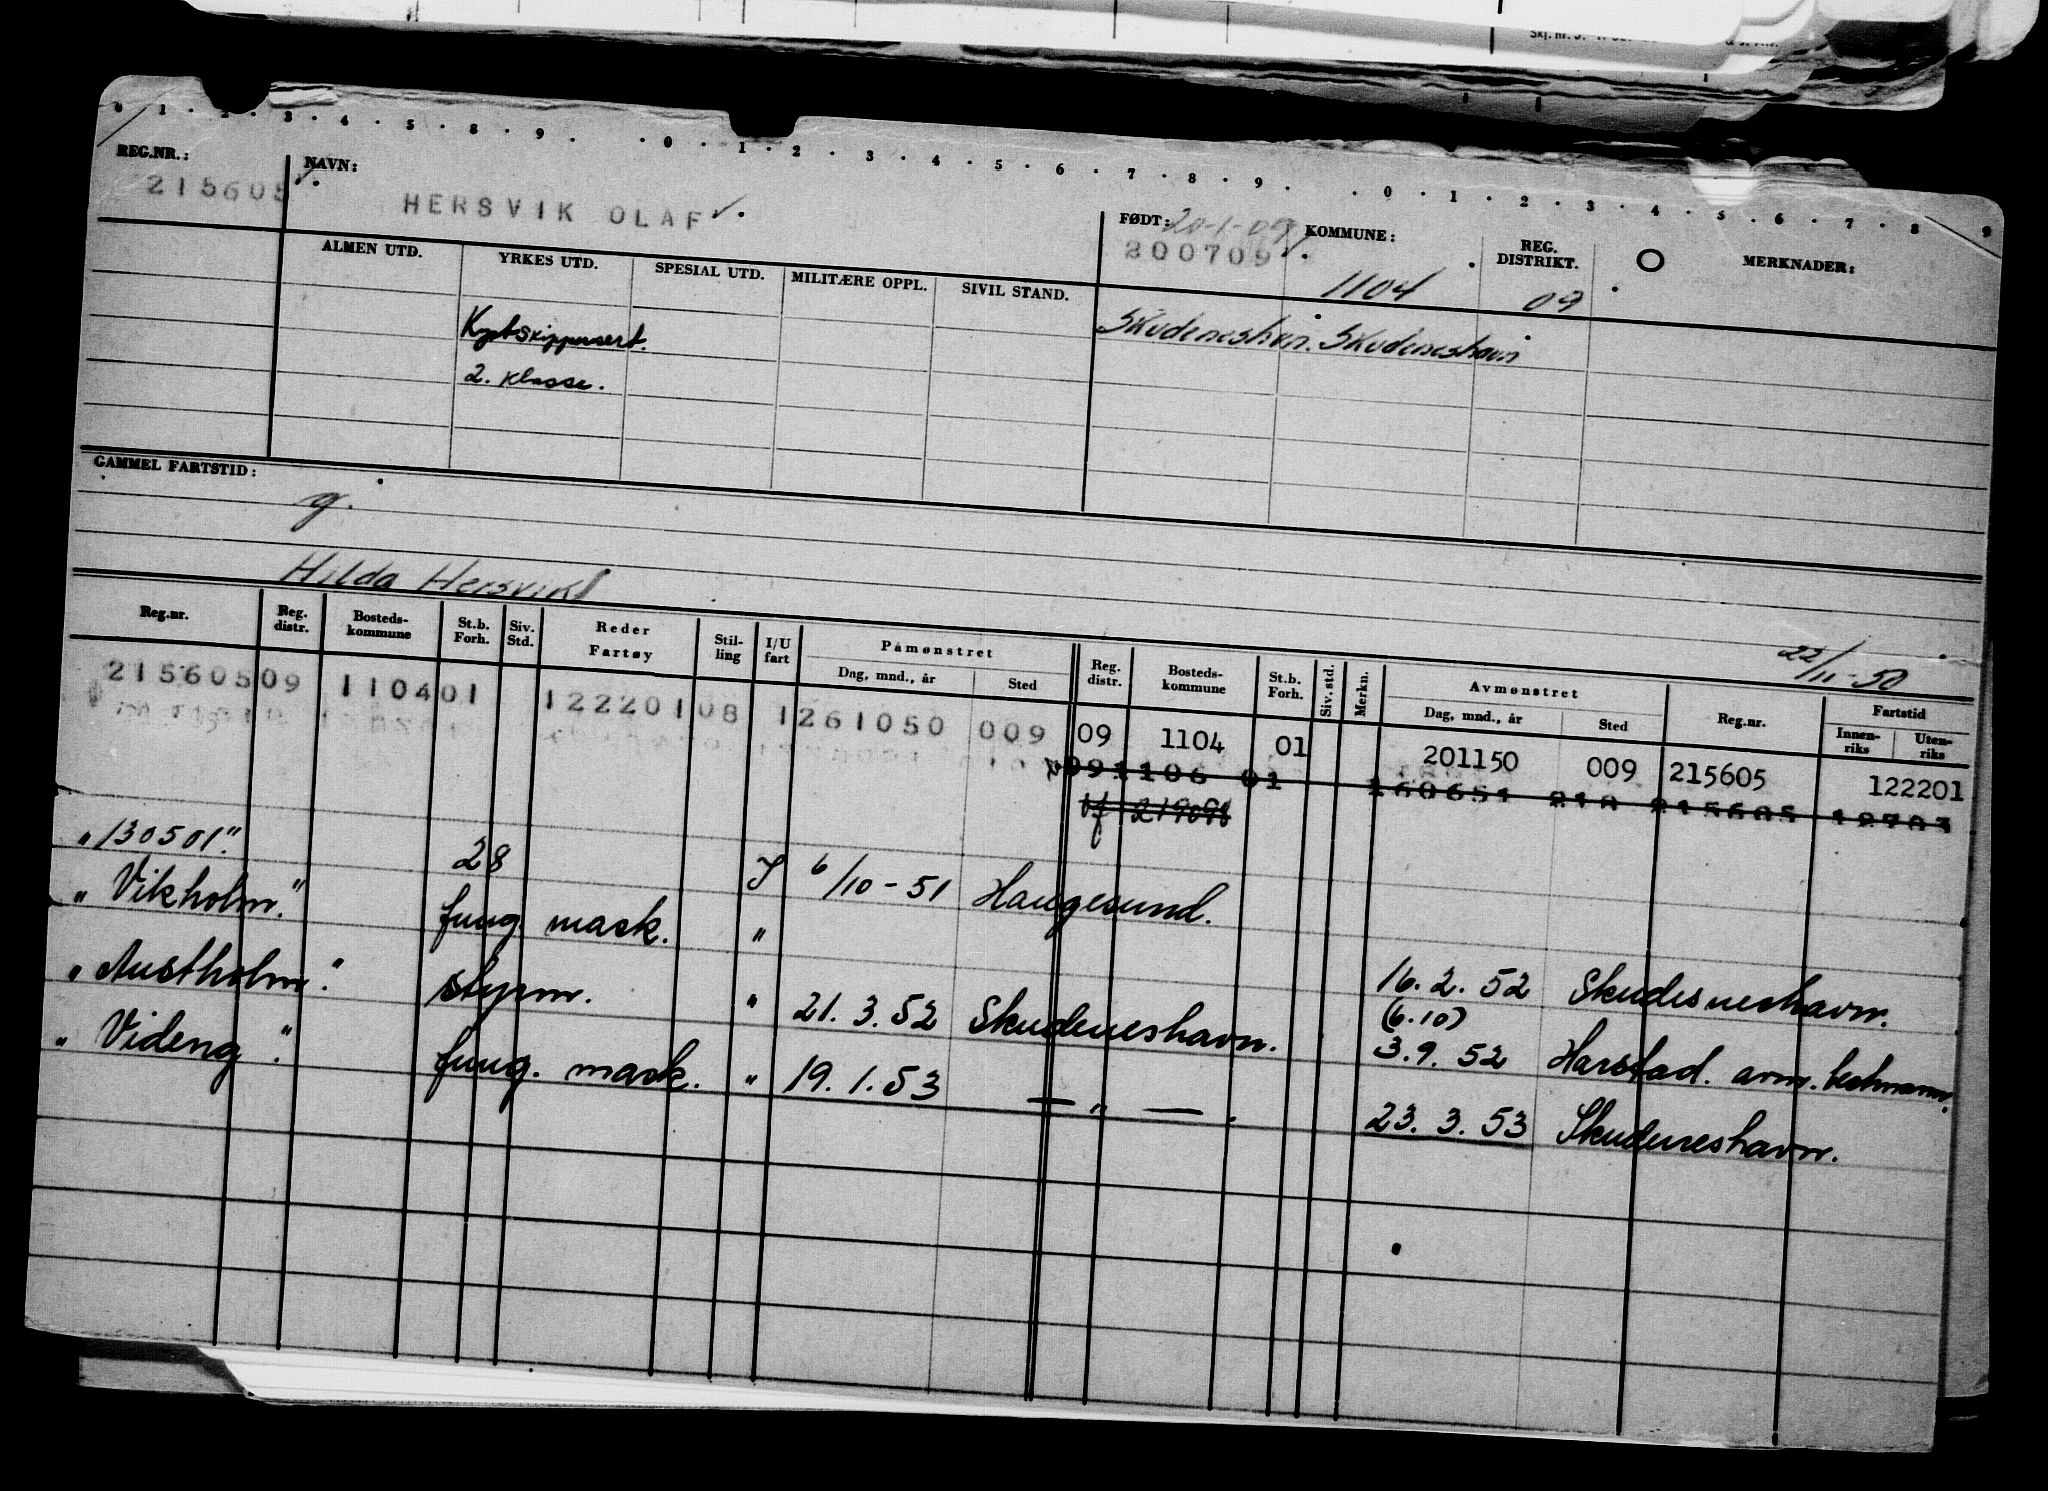 0 · 1 · 2 · 3 · 4 · 5 · 8 · 9 · · 0 · 1 · 2 · 3 · 4 · 5 · 6 · 7 · 8 · 9 · · 0 · 1 · 2 · 3 · 4 · 5 · 6 · 7 · 8 · 9
REG.NR.: NAVN: FØDT: 20-1-09 KOMMUNE: REG. DISTRIKT. MERKNADER:
215605 HERSVIK OLAF 200709 1104 09
ALMEN UTD. YRKES UTD. SPESIAL UTD. MILITÆRE OPPL. SIVIL STAND.
Kystskippersert. Skudeneshavn. Skudeneshavn
2. klasse.
GAMMEL FARTSTID:
g.
Hilda Hersvik
22/11-50
Reg.nr. Reg. distr. Bosteds-kommune St.b. Forh. Siv. Std. Reder Fartøy Stil-ling I/U fart Påmønstret Dag, mnd., år Sted Reg. distr. Bosteds-kommune St.b. Forh. Siv. std. Merkn. Avmønstret Dag, mnd., år Sted Reg.nr. Fartstid Innen-riks Uten-riks
215605 09 1104 01 122201 08 1 261050 009 09 1104 01 201150 009 215605 122201
09 1106 01 160651 218 215605 12703
"130501". 28 I 6/10-51 Haugesund.
"Vikholm". fung. mask. " 16.2.52 Skudesneshavn.
(6.10)
"Austholm". styrm. " 21.3.52 Skudeneshavn. 3.9.52 Harstad. avm. bestmann.
"Videng". fung. mask. " 19.1.53 — " — . 23.3.53 Skudeneshavn.